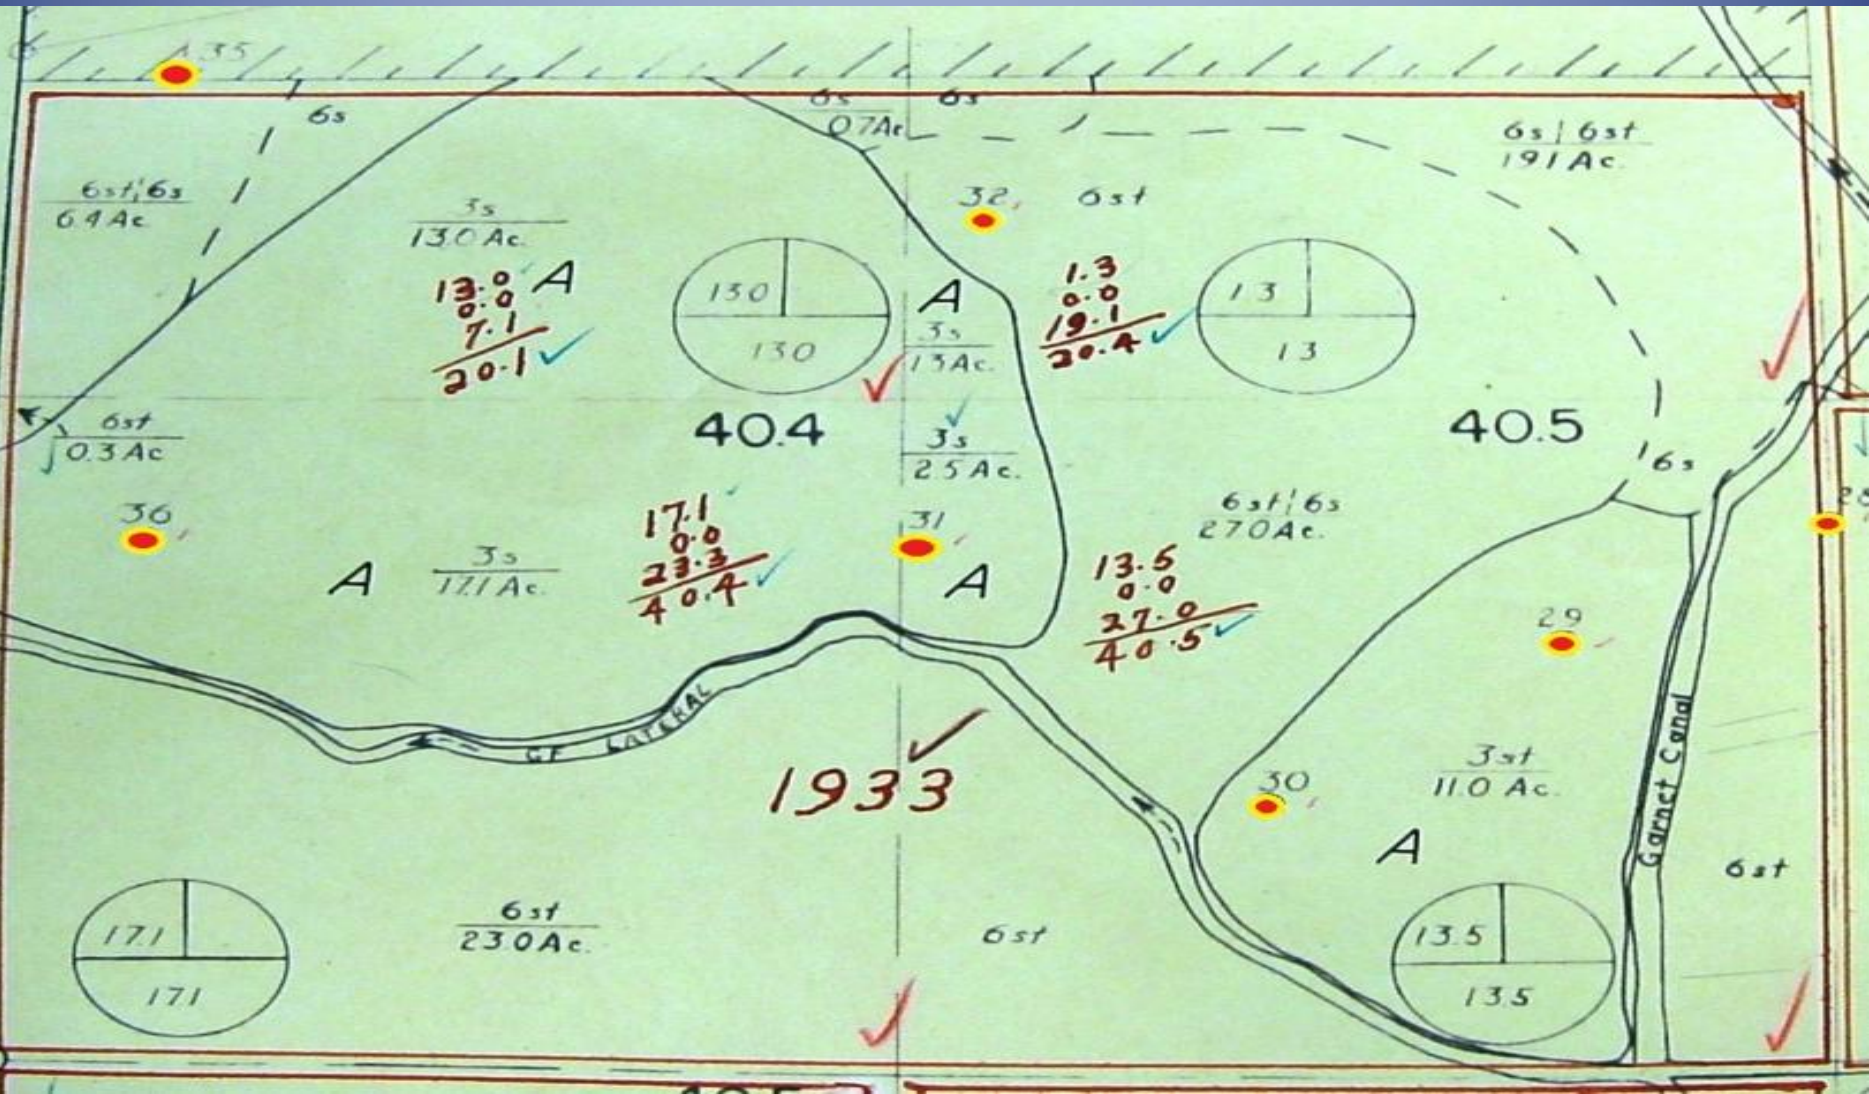 35
6s
6s
0.7Ac
6s
6s 6st
19.1 Ac.
6st 6s
6.4 Ac.
3s
13.0 Ac.
32
6st
13.0
0.0
7.1
20.1
A
13.0
13.0
A
3s
1.3 Ac.
1.3
0.0
19.1
20.4
1.3
1.3
6st
0.3 Ac
40.4
3s
2.5 Ac.
40.5
6s
36
17.1
0.0
23.3
40.4
31
6st 6s
27.0 Ac.
28
A
3s
17.1 Ac.
A
13.5
0.0
27.0
40.5
29
CF LATERAL
1933
30
3st
11.0 Ac.
Garnet Canal
A
6st
17.1
17.1
6st
23.0 Ac.
6st
13.5
13.5